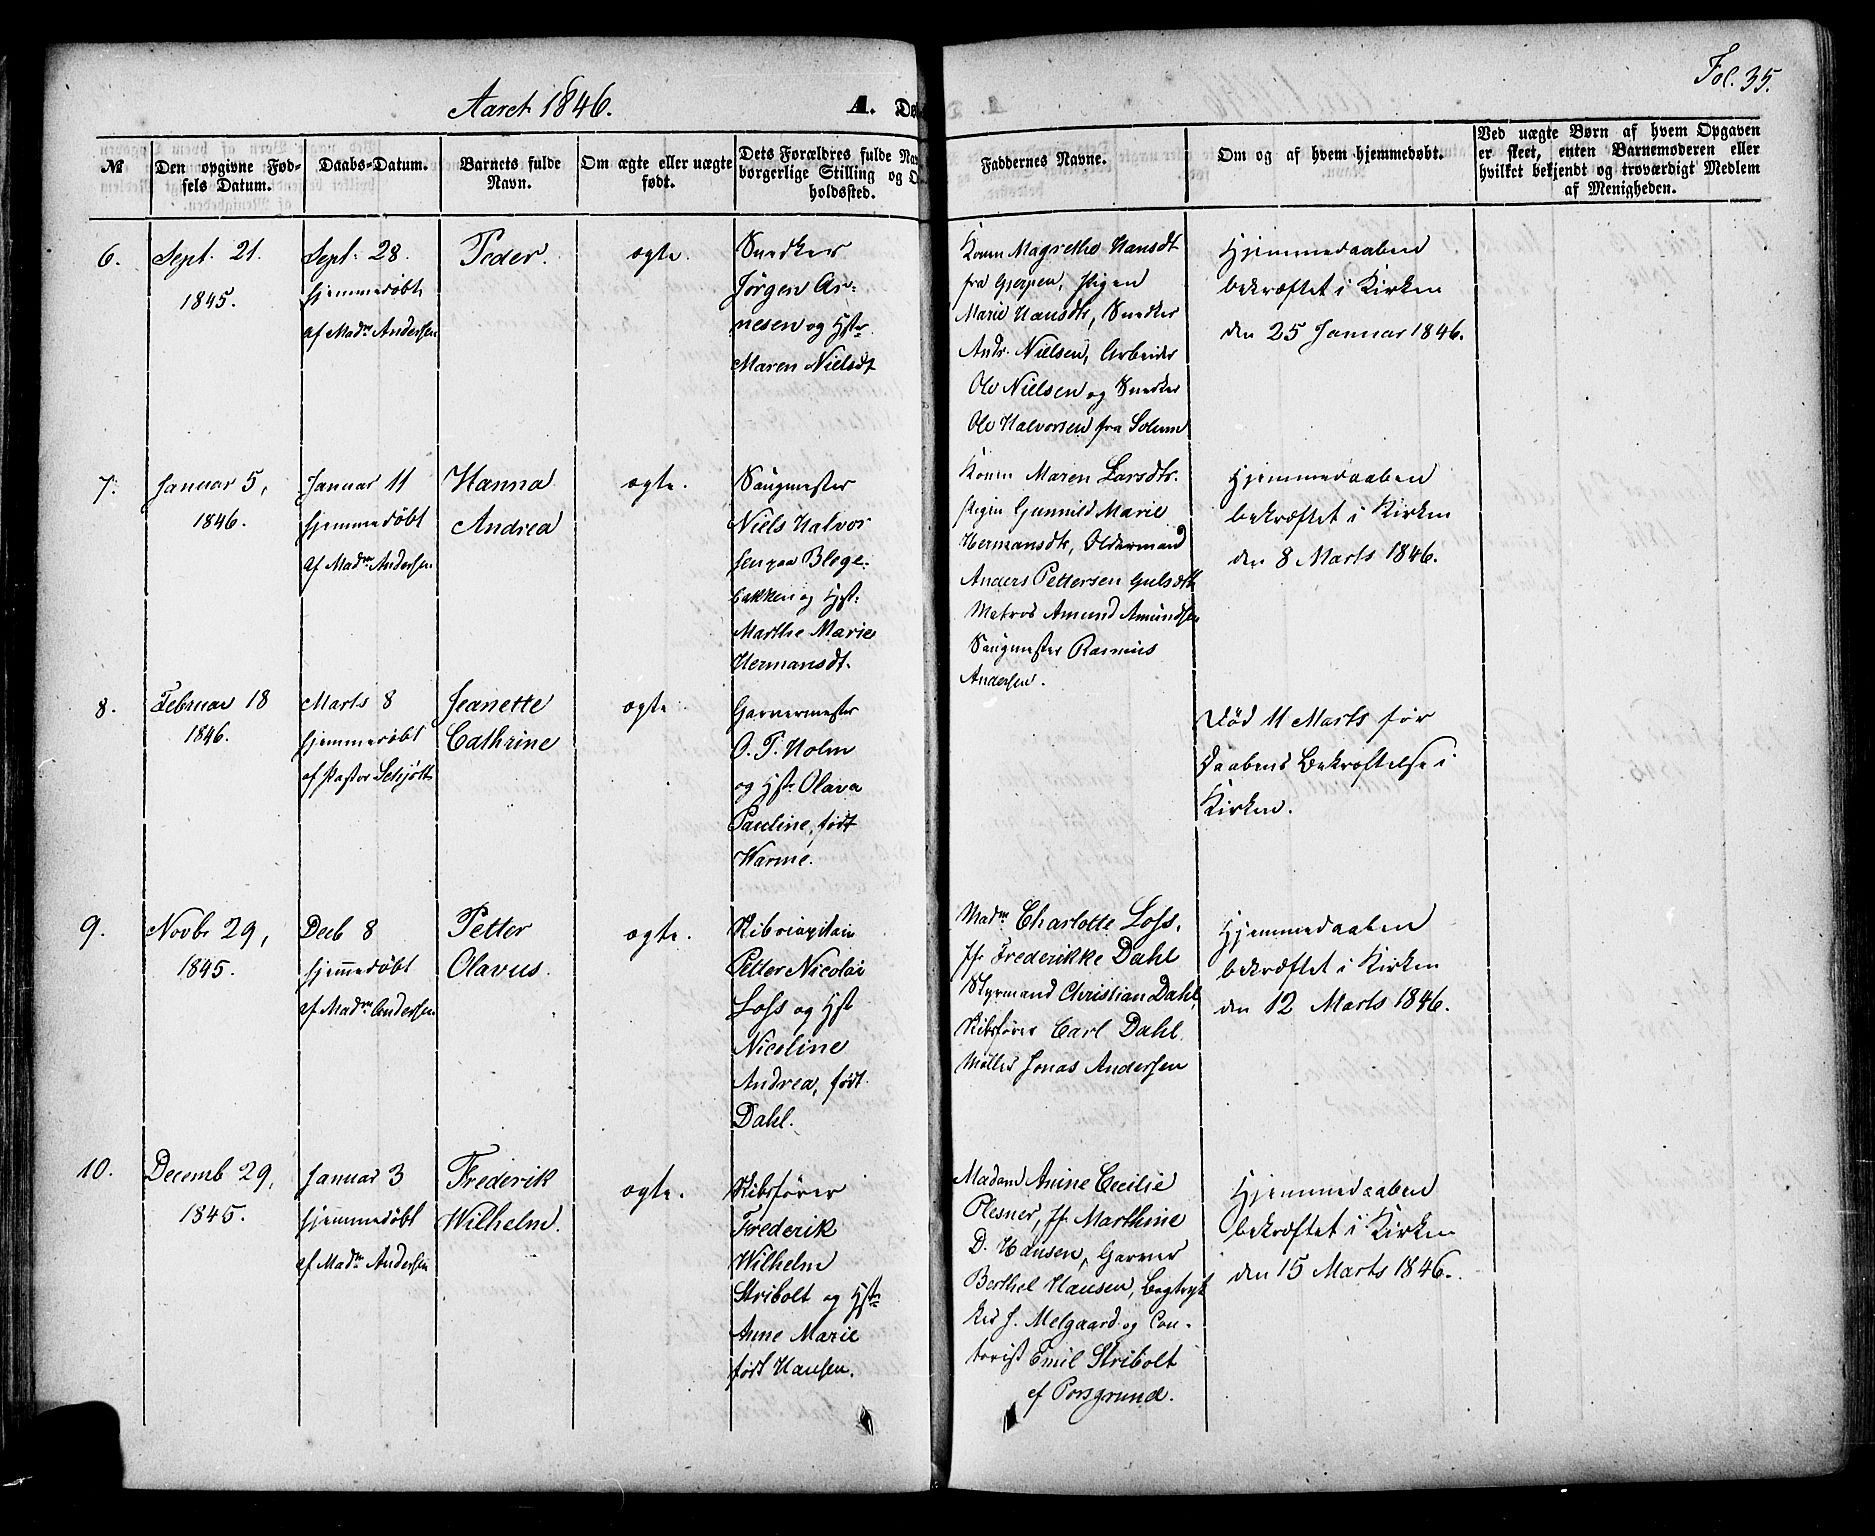 Aaret 1846.
A. Dø
Fol. 35.
№
Den opgivne Fød-
sels Datum.
Daabs-Datum.
Barnets fulde
Navn.
Om ægte eller uægte
født.
Dets Forældres fulde Nav
borgerlige Stilling og O
holdssted.
Faddernes Navne.
Om og af hvem hjemmedøbt.
Ved uægte Børn af hvem Opgaven
er skeet, enten Barnemoderen eller
hvilket bekjendt og troværdigt Medlem
af Menigheden.
6.
Sept. 21.
1845.
Sept. 28.
hjemmedøbt
af Madm Andersen
Peder.
ægte.
Snedker
Jørgen Ar-
nesen og Hstr.
Maren Nielsdt
Konen Magrethe Hansdt
fra Gjerpen, Pigen
Marie Hansdt, Snedker
Andr. Nielsen, Arbeider
Ole Nielsen og Snedker
Ole Halvorsen fra Solum
Hjemmedaaben
bekræftet i Kirken
den 25 Januar 1846.
7.
Januar 5,
1846.
Januar 11
hjemmedøbt
af Madm Andersen
Hanna
Andrea
ægte.
Saugmester
Niels Halvor
sen paa Blege-
bakken og Hst:
Marthe Marie
Hermansdt.
Konen Maren Larsdt.
Pigen Gunnild Marie
Hermansdt, Oldermand
Anders Pettersen Gulset
Matros Amund Amundsen
Saugmester Rasmus
Andersen.
Hjemmedaaben
bekræftet i Kirken
den 8 Marts 1846.
8.
Februar 18
1846.
Marts 8
hjemmedøbt
af Pastor Schjøtt
Jeanette
Cathrine
ægte.
Garvermester
O. P. Holm
og Hst. Olava
Pauline, født
Warme.
Død 11 Marts før
Daabens Bekræftelse i
Kirken.
9.
Novbr 29,
1845.
Decb 8
hjemmedøbt
af Madm Andersen
Petter
Olavus.
ægte.
Skibscapitain
Petter Nicolai
Loss og Hst
Nicoline
Andrea, født
Dahl.
Madm Charlotte Loss.
Jfr Frederikke Dahl
Styrmand Christian Dahl,
Skibsfører Carl Dahl.
Møller Jonas Andersen
Hjemmedaaben
bekræftet i Kirken
den 12 Marts 1846.
10.
Decemb 29,
1845.
Januar 3
hjemmedøbt
af Madm Andersen
Frederik
Wilhelm.
ægte.
Skibsfører
Frederik
Wilhelm
Stribolt og Hstr
Anne Marie
født Hansen.
Madam Anine Cecilie
Plesner, Jfr Marthine
D. Hansen, Garver
Berthel Hansen, Bogtryk
ker J. Melgaard og Con-
torist Emil Stribolt
af Porsgrund.
Hjemmedaaben
bekræftet i Kirken
den 15 Marts 1846.